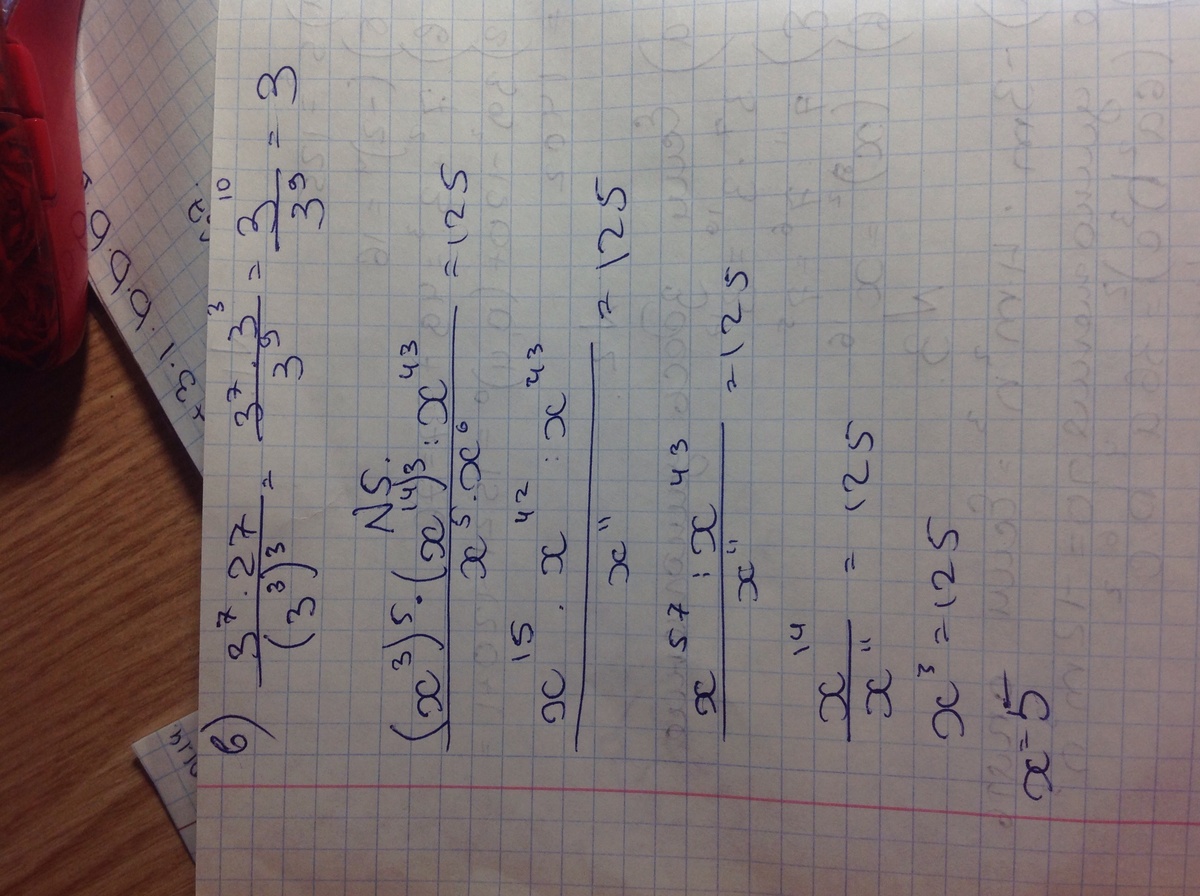 в) 3⁷·27/(3³)³ = 3⁷·3³/3⁹ = 3¹⁰/3⁹ = 3
N5.
(x³)⁵·(x¹⁴)³:x⁴³/x⁵·x⁶ = 125
x¹⁵·x⁴²:x⁴³/x¹¹ = 125
x⁵⁷:x⁴³/x¹¹ = 125
x¹⁴/x¹¹ = 125
x³ = 125
x = 5